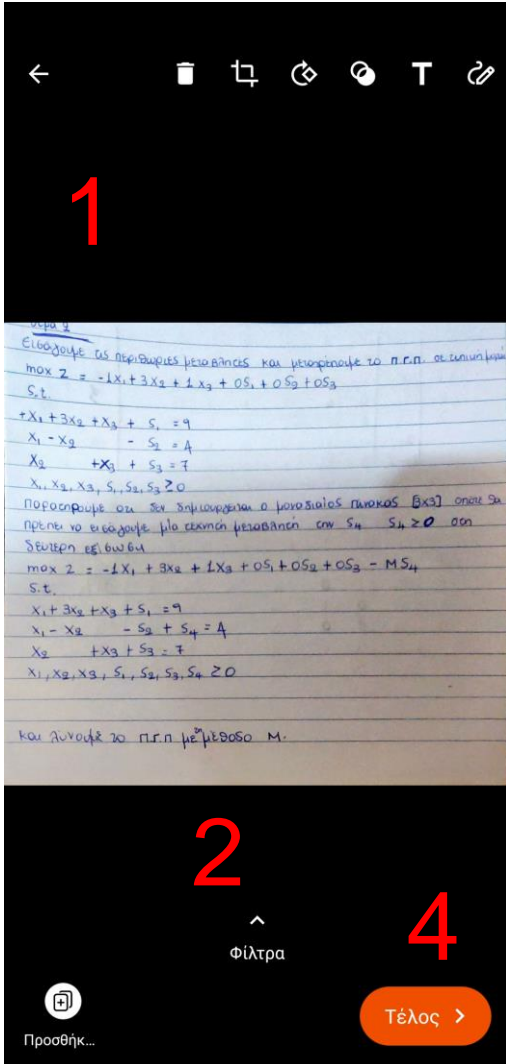 1
θεμα 2
Εισάγουμε τις περιθώριες μεταβλητές και μετατρέπουμε το π.γ.π. σε τυπική μορφή
max Z = -1x₁ + 3x₂ + 1x₃ + 0S₁ + 0S₂ + 0S₃
S.t.
+x₁ + 3x₂ + x₃ + S₁ = 9
x₁ - x₂ - S₂ = 4
x₂ + x₃ + S₃ = 7
x₁, x₂, x₃, S₁, S₂, S₃ ≥ 0
Παρατηρούμε οτι δεν δημιουργείται ο μοναδιαίος πίνακας [3x3] οπότε θα
πρέπει να εισάγουμε μία τεχνητή μεταβλητή την S₄ S₄ ≥ 0 στη
δεύτερη εξίσωση
max Z = -1x₁ + 3x₂ + 1x₃ + 0S₁ + 0S₂ + 0S₃ - MS₄
S.t.
x₁ + 3x₂ + x₃ + S₁ = 9
x₁ - x₂ - S₂ + S₄ = 4
x₂ + x₃ + S₃ = 7
x₁, x₂, x₃, S₁, S₂, S₃, S₄ ≥ 0
και λύνουμε το π.γ.π με τη μέθοδο Μ.
2
4
Φίλτρα
Προσθήκ...
Τέλος >